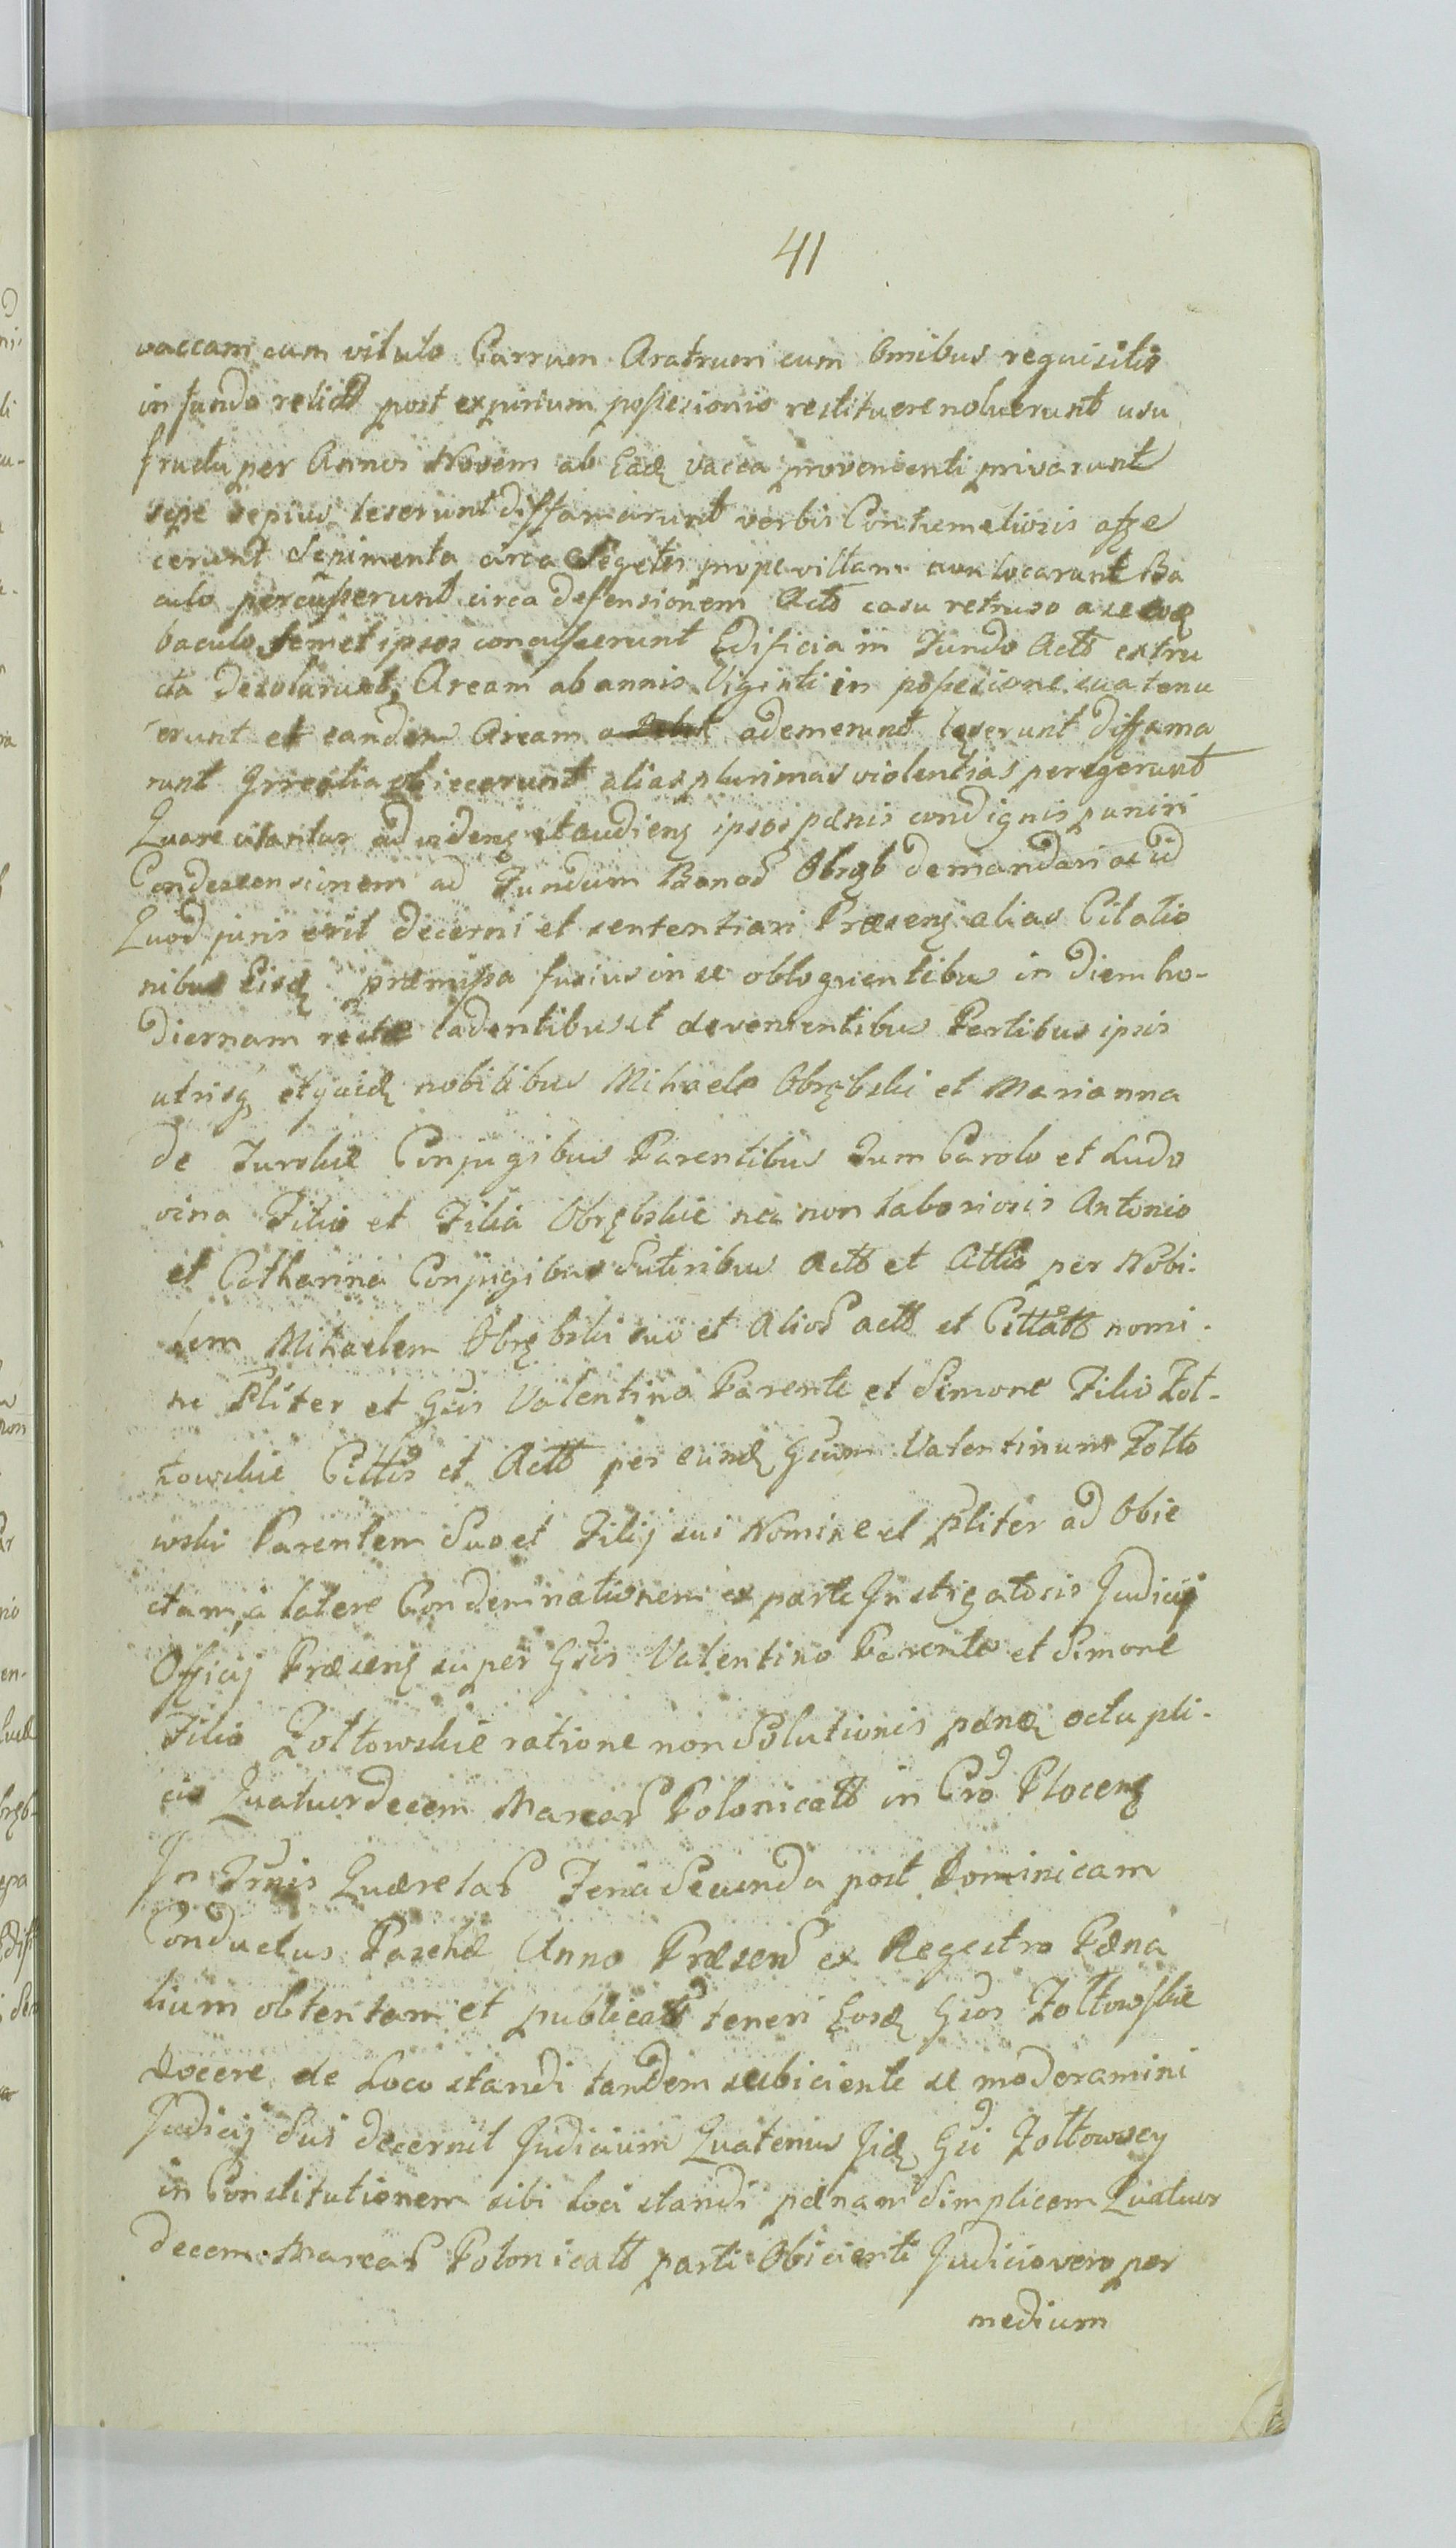 41
vaccam cum vitulo Carrum Aratrum cum omibus requisitis
in fundo relict post expirium possesionis restituere noluerunt usu
fructu per Annos Novem ab Eadę vacca provenienti privarunt
sepe sepius leserunt diffamarunt verbis Contumeliosis affe
cerunt Sepimenta circa Segetes prope villam
culo percusserunt circa defensionem Actt casu retruso a se
baculo semet ipsos concusserunt Edificia in Fundo Actt extru
cta desolarunt Aream ab annis Viginti in possesione sua tenu
erunt et eandem Aream ademerunt lęserunt diffama
runt Irrealia obiecerunt alias plurimas violentias peregerunt
Quare citantur ad videnę et audienę ipsos pœnis condignis puniri
Condescensionem ad Fundum Bonoᵭ Obręb demandari ac id
Quod juris erit decerni et sententiari Præsenę alias Citatio
nibus Eisdę præmissa fusius in se obloquentibus in diem ho-
diernam recte cadentibus et devenientibus Partibus ipsis
utrisqȝ et quidę nobilibus Mihaele Obrębski et Marianna
de Turskie Conjugibus Parentibus tum Carolo et Ludo
vina Filio et Filia Obrębskie nec non laboriosis Antonio
et Catharina Conjugibus Sutoribus Actt et Cttis per Nobi-
lem Mihaelem Obrębski suo et alioᵭ actt et Cittatt nomi-
ne Pliter et Gsis Valentino Parente et Simone Filio Żoł-
towskie Cittis et Actt per eundę Gsum Valentinum Żołto
wski Parentem Suo et Filij sui Nomine et pliter ad Obie
ctam a latere Condemnationem ex parte Instigatoris Judicij
Officij Præsenę super Gsis Valentino Parente et Simone
Filio Żołtowskie ratione non Solutionis pœnę octupli-
cis Quatuordecem Marcaᵭ Polonicatt in Cro Plocenę
In Tmis Quærelaᵭ Feria Secunda post Dominicam
Conductus Paschæ Anno Præsenᵭ ex Regestro Pœna
lium obtentam et publicatt teneri Eosdę Gsos Żołtowskie
docere de Loco standi tandem subiciente se moderamini
Judicij Sui decernit Judicium Quatenus Jidę Gsi Żołtowscy
in Constitutionem sibi loci standi pœnam Simplicem Quatuor
decem Marcaᵭ Polonicatt parti Obicienti Judicio vero per
medium